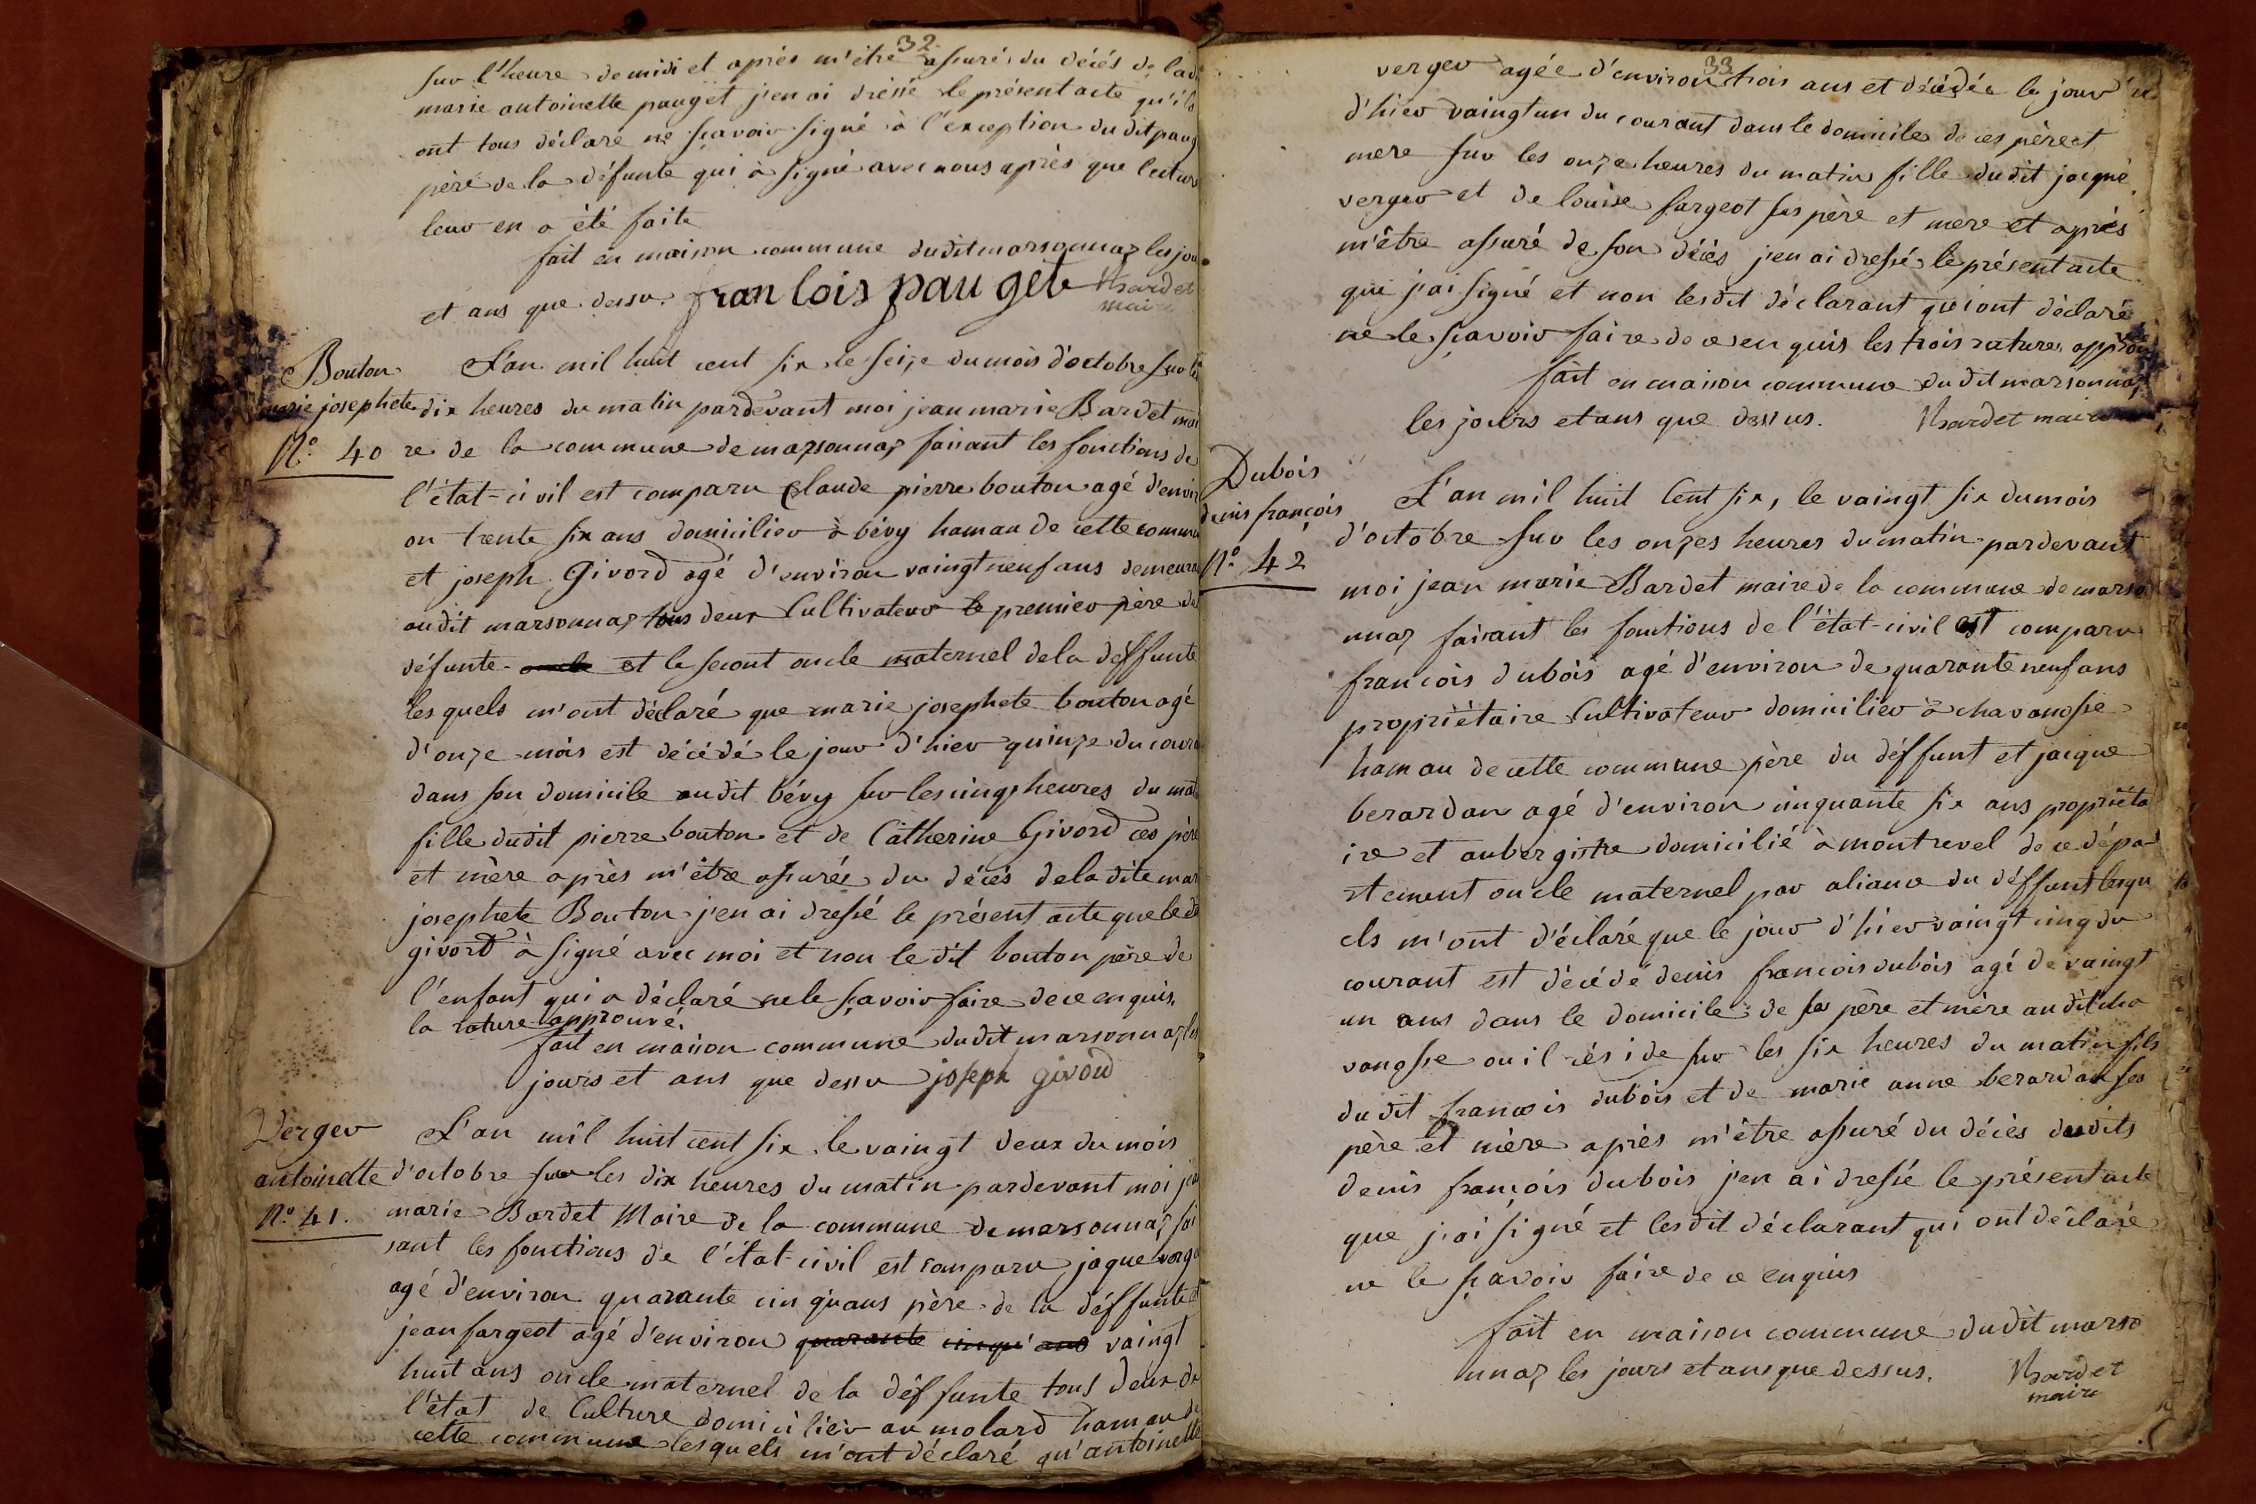 32
sur l'heure de midi et après m'etre assuré du décés de lad
marie antoinette pauget j'en ai dressé le présent acte qu'ils
ont tous déclaré ne sçavoir signé à l'exception dudit paug
père de la défunte qui à signé avec nous après que lecture
leur en a été faite
fait en maison commune dudit marsonnaz les jou
et ans que dessu. franlois pauget Bardet
maire
Bouton
marie josephete
N.o 40
L'an mil huit cent six le seize du mois d'octobre sur les
dix heures du matin pardevant moi jean marie Bardet mai
re de la commune de marsonnaz faisant les fonctions de
l'état-civil est comparu Claude pierre bouton agé d'envir
on trente six ans domicilier à bévy hamau de cette commu
et joseph Givord agé d'environ vaingt neuf ans demeura
audit marsonnaz tous deux Cultivateur le premier père de
défunte oncle et le secont oncle maternel de la déffunte
les quels m'ont déclaré que marie josephete bouton agé
d'onze mois est décédé le jour d'hier quinze du coura
dans son domicile audit bévy sur les cinq heures du mat
fille dudit pierre bouton et de Catherine Givord ces père
et mère après m'être assurée du décés de la dite mar
josephete Bouton j'en ai dressé le présent acte que le dt
givord à signé avec moi et non le dit bouton père de
l'enfant qui a déclaré ne le sçavoir faire de ce enquis.
la rature approuvé.
fait en maison commune dudit marsonnaz les
jours et ans que dessu joseph givord
Verger
antoinette
N.o 41.
L'an mil huit cent six le vaingt deux du mois
d'octobre sur les dix heures du matin pardevant moi jea
marie Bardet Maire de la commune de marsonnaz fai
sant les fonctions de l'état-civil est comparu jaque verge
agé d'environ quarante cinq'ans père de la déffunte et
jean fargeot agé d'environ quarante cinqu'ans vaingt
huit ans oncle maternel de la déffunte tous deux de
l'état de Culture domicilier au molard hamau de
cette commune lesquels m'ont déclaré qu'antoinette
33
verger agée d'environ trois ans et décédée le jour
d'hier vaingt un du courant dans le domicile de ces père et
mere sur les onze heures du matin fille dudit jacque
verger et de louise fargeot ses père et mère et après
m'être assuré de son décés j'en ai dressé le présent acte
que j'ai signé et non lesdit déclarant qui ont déclaré
ne le sçavoir faire de ce en quis les trois ratures approu
fait en maison commune dudit marsonnaz
les jours et ans que dessus. Bardet maire
Dubois
denis françois
N.o 42
L'an mil huit Cent six, le vaingt six du mois
d'octobre sur les onzes heures du matin pardevant
moi jean marie Bardet maire de la commune de marso
nnaz faisant les fonctions de l'état-civil est comparu
francois dubois agé d'environ de quarante neuf ans
propriétaire Cultivateur domicilier à chavanosse
hamau de cette commune père du déffunt et jacque
berardan agé d'environ cinquante six ans propriéta
ire et aubergistre domicilié à montrevel de ce dépar
tement oncle maternel par aliance du déffunt lesqu
els m'ont d'éclaré que le jour d'hier vaingt cinq du
courant est décédé denis francois dubois agé de vaingt
un ans dans le domicile de ses père et mère audit cha
vanosse ou il réside sur les six heures du matin fils
du dit francois dubois et de marie anne berardan ses
père et mère après m'être assuré du décès dudits
denis françois dubois j'en ai dressé le présent acte
que j'ai signé et lesdit déclarant qui ont déclaré
ne le sçavoir faire de ce enquis
fait en maison commune dudit marso
nnaz les jours et ans que dessus. Bardet
maire